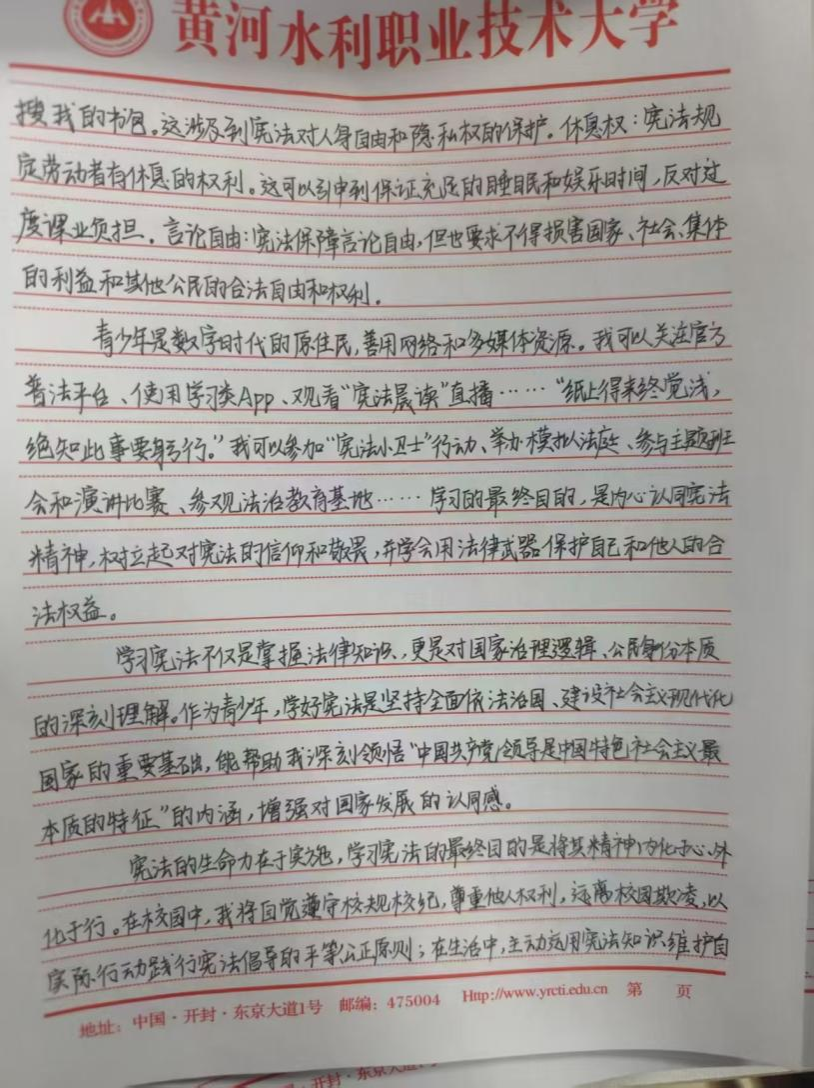 黄河水利职业技术大学
搜我的书包。这涉及到宪法对人身自由和隐私权的保护。休息权：宪法规
定劳动者有休息的权利。这可以引申到保证充足的睡眠和娱乐时间，反对过
度课业负担。言论自由：宪法保障言论自由，但也要求不得损害国家、社会、集体
的利益和其他公民的合法自由和权利。
青少年是数字时代的原住民，善用网络和多媒体资源。我可以关注官方
普法平台、使用学习类App、观看“宪法晨读”直播……“纸上得来终觉浅，
绝知此事要躬行。”我可以参加“宪法小卫士”行动、举办模拟法庭、参与主题班
会和演讲比赛、参观法治教育基地……学习的最终目的，是内心认同宪法
精神，树立起对宪法的信仰和敬畏，并学会用法律武器保护自己和他人的合
法权益。
学习宪法不仅是掌握法律知识，更是对国家治理逻辑、公民身份本质
的深刻理解。作为青少年，学好宪法是坚持全面依法治国、建设社会主义现代化
国家的重要基础，能帮助我深刻领悟“中国共产党领导是中国特色社会主义最
本质的特征”的内涵，增强对国家发展的认同感。
宪法的生命力在于实施，学习宪法的最终目的是将其精神内化于心、外
化于行。在校园中，我将自觉遵守校规校纪，尊重他人权利，远离校园欺凌，以
实际行动践行宪法倡导的平等公正原则；在生活中，主动运用宪法知识维护自
地址：中国·开封·东京大道1号 邮编：475004 Http://www.yrcti.edu.cn 第 页
·开封·东京大道1号